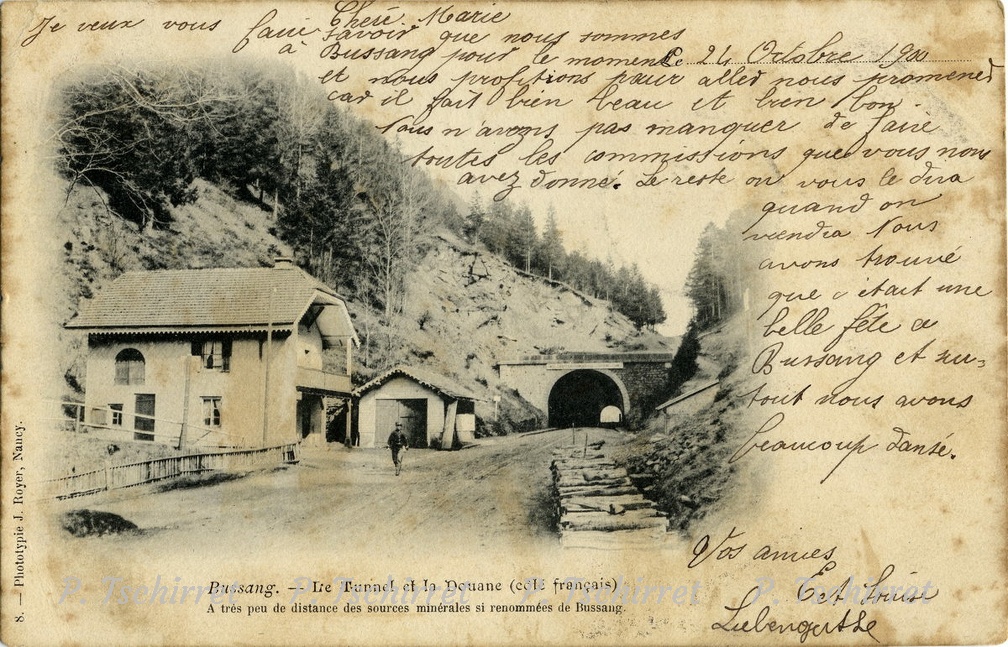 Cheré. Marie
Je veux vous faire savoir que nous sommes
à Bussang pour le moment
Le 24 Octobre 1900
et nous profitions pour aller nous promener
car il fait bien beau et bien bon.
Nous n'avons pas manquer de faire
toutes les commissions que vous nous
avez donné. Le reste on vous le dira
quand on
viendra Nous
avons trouvé
que c'était une
belle fête a
Bussang et sur-
tout nous avons
beaucoup dansé.
Vos amies
Louise
Bussang. — Le Tunnel et la Douane (coté français)
A très peu de distance des sources minérales si renommées de Bussang.
8. — Phototypie J. Royer, Nancy.
P. Tschirret P. Tschirret P. Tschirret P. Tschirret